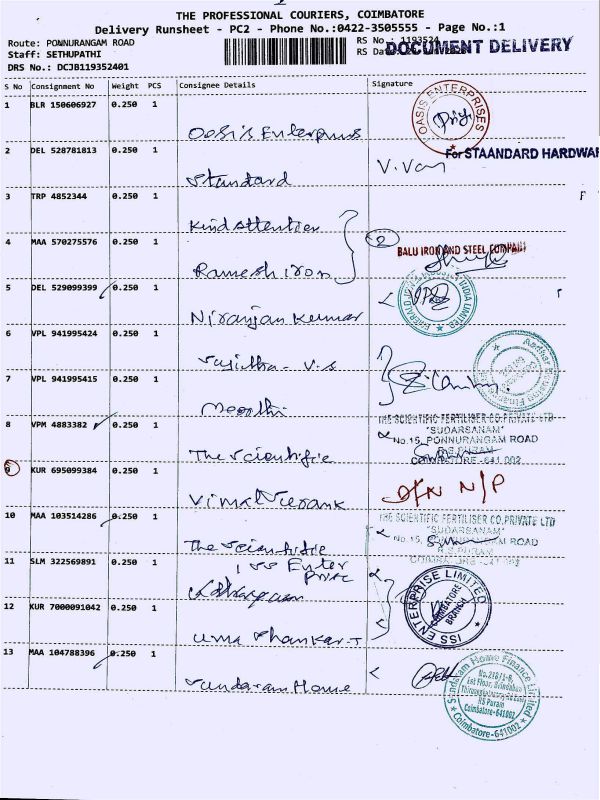 THE PROFESSIONAL COURIERS, COIMBATORE
Delivery Runsheet - PC2 - Phone No.:0422-3505555 - Page No.:1
Route: PONNURANGAM ROAD
RS No. 1193524
Staff: SETHUPATHI
RS Da
DOCUMENT DELIVERY
DRS No.: DCJB119352401
S No Consignment No Weight PCS Consignee Details Signature
1 BLR 150606927 0.250 1
Oasis Enterprises
OASIS ENTERPRISES
2 DEL 528781813 0.250 1
Standard
V. Van
For STAANDARD HARDWAR
3 TRP 4852344 0.250 1
Kind Attention
F
4 MAA 570275576 0.250 1
Ramesh iron
2
BALU IRON AND STEEL COMPANY
5 DEL 529099399 0.250 1
Niranjan Kumar
6 VPL 941995424 0.250 1
Vasitha V.S
7 VPL 941995415 0.250 1
Moorthi
8 VPM 4883382 0.250 1
The Scientific
THE SCIENTIFIC FERTILISER CO. PRIVATE LTD
"SUDARSANAM"
No.15, PONNURANGAM ROAD
R.S.PURAM
COIMBATORE-641 002
9 KUR 695099384 0.250 1
Vimal
N/P
10 MAA 103514286 0.250 1
The Scientific
THE SCIENTIFIC FERTILISER CO. PRIVATE LTD
"SUDARSANAM"
No 15, PONNURANGAM ROAD
R.S.PURAM
COIMBATORE-641 002
11 SLM 322569891 0.250 1
ISS Enter
prise
12 KUR 7000091042 0.250 1
Uma Shankar-T
ISS ENTERPRISE LIMITED
COIMBATORE
BRANCH
13 MAA 104788396 0.250 1
Sundaram Home
Sundaram Home Finance Limited
No.218/1-8,
1st Floor, Brindhavan
RS Puram
Coimbatore-641002
Coimbatore-641002